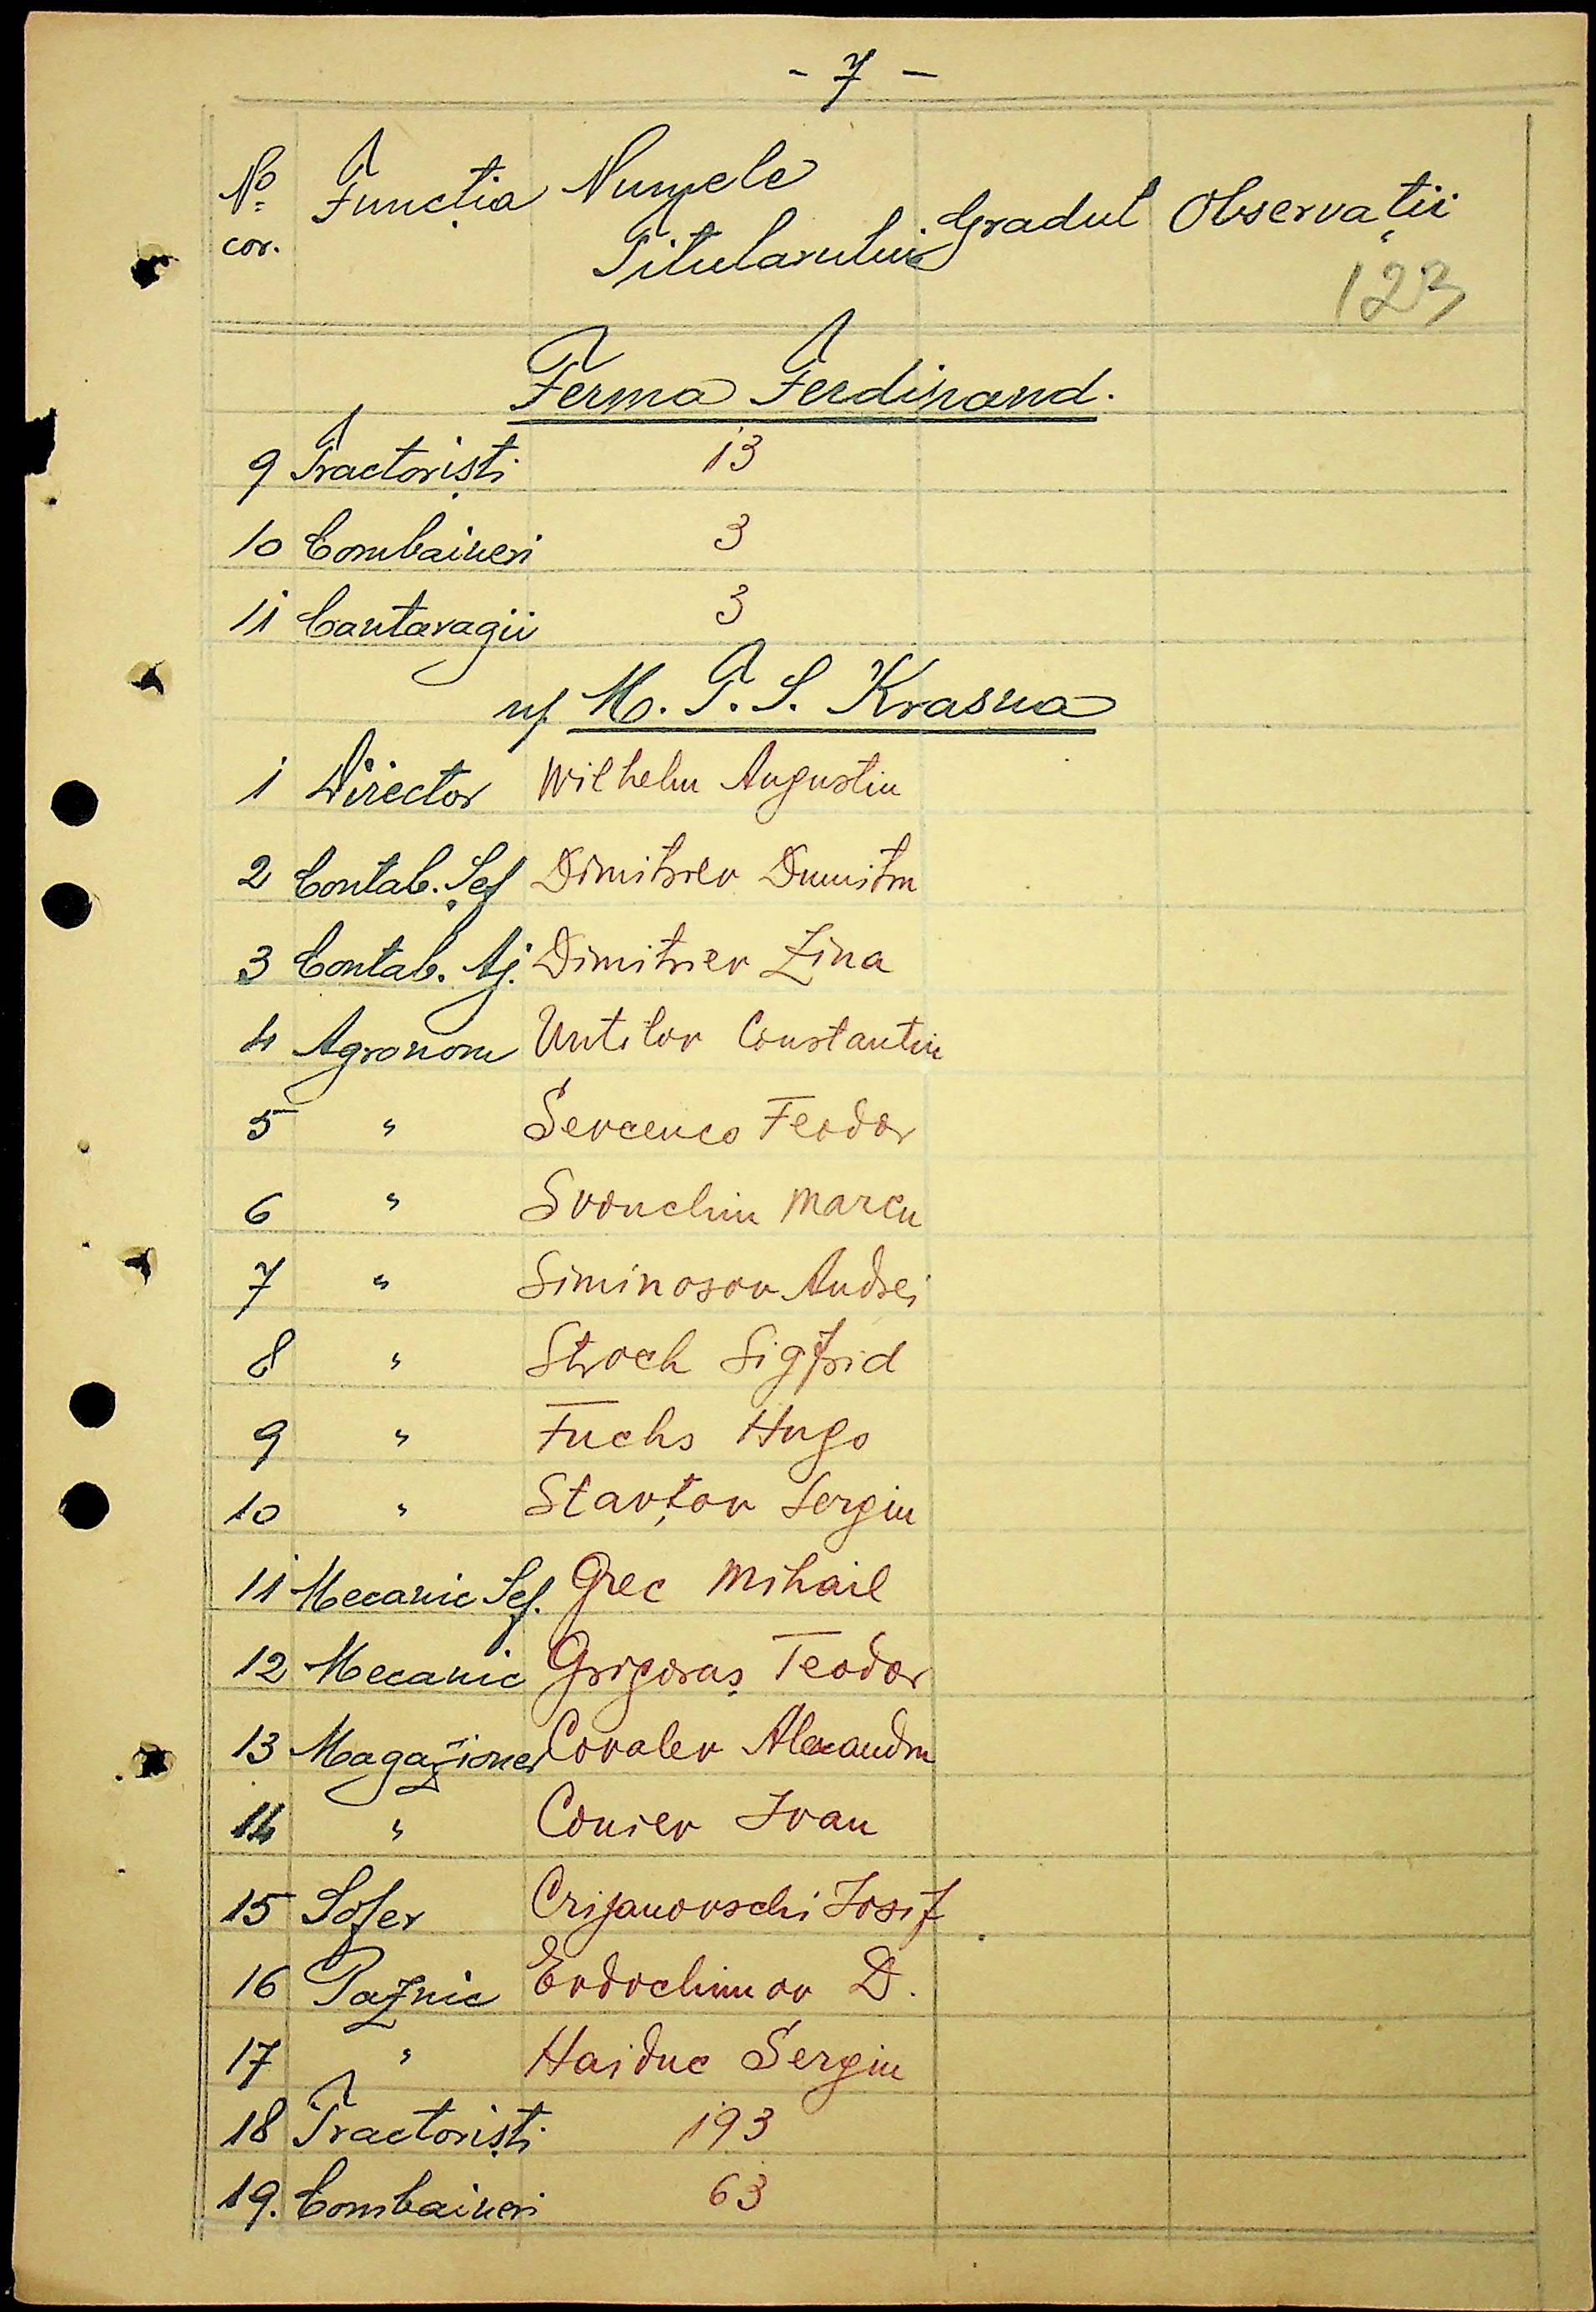 - 7 -
No cor. Funcția Numele Titularului Gradul Observații
123
Ferma Ferdinand.
9 Tractoriști 13
10 Combaineri 3
11 Cantaragii 3
M. T. S. Krasna
1 Director Wilhelm Augustin
2 Contab. Șef Dimitriev Dumitru
3 Contab. Aj. Dimitriev Zina
4 Agronom Untilov Constantin
5 " Sevcenco Feodor
6 " Svonchin Marcu
7 " Siminosov Andrei
8 " Stroch Sigfrid
9 " Fuchs Hugo
10 " Starțov Sergiu
11 Mecanic Sef. Grec Mihail
12 Mecanic Grigoraș Teodor
13 Magazioner Covalev Alexandru
14 " Coniev Ivan
15 Sofer Crijanovschi Iosif
16 Paznic Evdochimov D.
17 " Haiduc Sergiu
18 Tractoriști 193
19. Combaineri 63